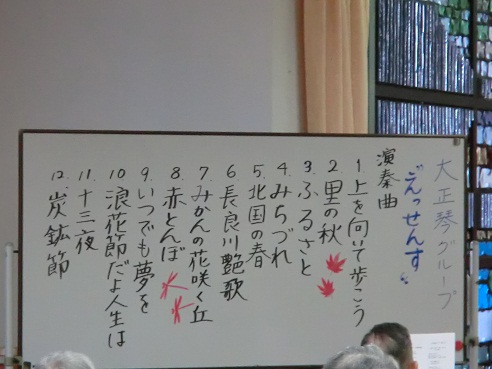 大正琴グループ
"えっせんす"
演奏曲
1 上を向いて歩こう
2. 里の秋
3. ふるさと
4. みちづれ
5. 北国の春
6 長良川艶歌
7. みかんの花咲く丘
8. 赤とんぼ
9. いつでも夢を
10 浪花節だよ人生は
11. 十三夜
12. 炭鉱節